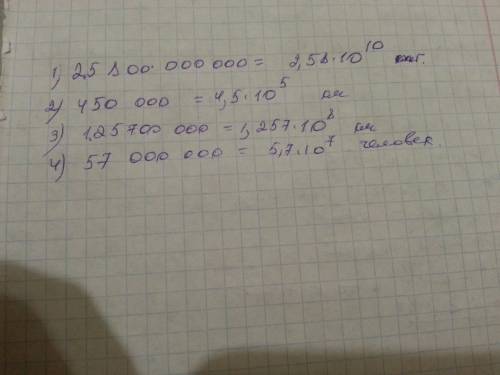 1) 25 800 000 000 = 2,58·10¹⁰
2) 450 000 = 4,5·10⁵ км
3) 125700 000 = 1,257·10⁸ км
4) 57 000 000 = 5,7·10⁷ человек.